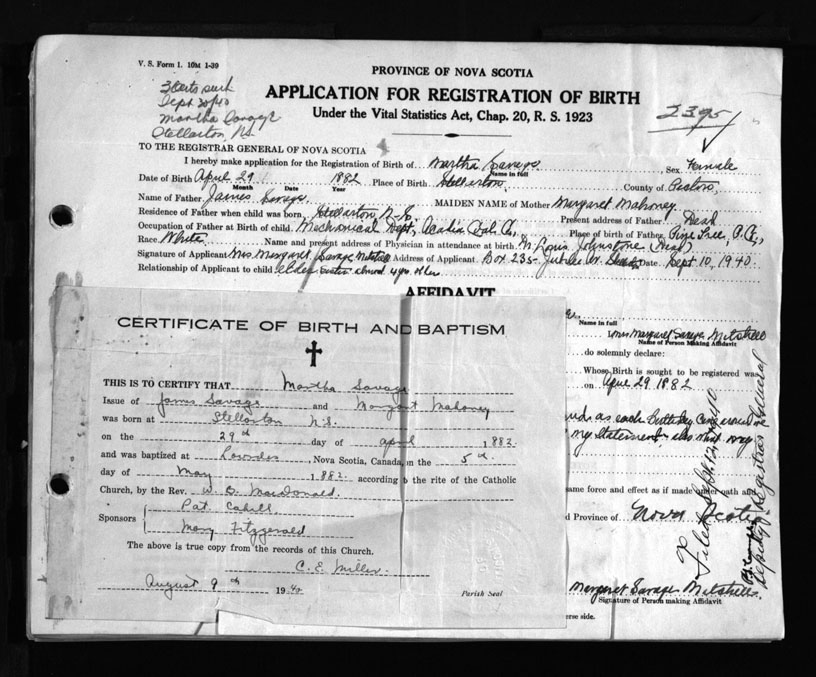 V. S. Form 1. 10M 1-39
Sept 20/40
Martha Savage
Stellarton N.S.
2395
PROVINCE OF NOVA SCOTIA
APPLICATION FOR REGISTRATION OF BIRTH
Under the Vital Statistics Act, Chap. 20, R. S. 1923
TO THE REGISTRAR GENERAL OF NOVA SCOTIA
I hereby make application for the Registration of Birth of Martha Savage Sex Female
Name in full
Date of Birth April 29 1882 Place of Birth Stellarton County of Pictou
Month Date Year
Name of Father James Savage MAIDEN NAME of Mother Margaret Mahoney
Residence of Father when child was born, Stellarton N.S. Present address of Father Dead
Occupation of Father at Birth of child Mechanical Dept, Acadia Coal Co., Place of birth of Father Pine Tree, P. Co.,
Race White Name and present address of Physician in attendance at birth Johnstone (Dead)
Signature of Applicant Mrs Margaret Savage Mitchell Address of Applicant Box 235- Jubilee Date Sept 10, 1940.
Relationship of Applicant to child elder sister almost 4 yrs older
AFFIDAVIT
Name in full
Mrs Margaret Savage Mitchell
Name of Person Making Affidavit
do solemnly declare:
Whose Birth is sought to be registered was
on April 29 1882
my statement
same force and effect as if made under oath and
d Province of Nova Scotia
Margaret Savage Mitchell
Signature of Person making Affidavit
verse side.
Filed Sept. 12th 1940
Deputy Registrar General
CERTIFICATE OF BIRTH AND BAPTISM
THIS IS TO CERTIFY THAT Martha Savage
Issue of James Savage and Margaret Mahoney
was born at Stellarton N.S.
on the 29th day of April 1882
and was baptized at Lourdes, Nova Scotia, Canada, on the 5th
day of May 1882 according to the rite of the Catholic
Church, by the Rev. W. B. MacDonald.
Sponsors
Pat Cahill
Mary Fitzgerald
The above is true copy from the records of this Church.
C. E. Miller
August 9th 1940
Parish Seal